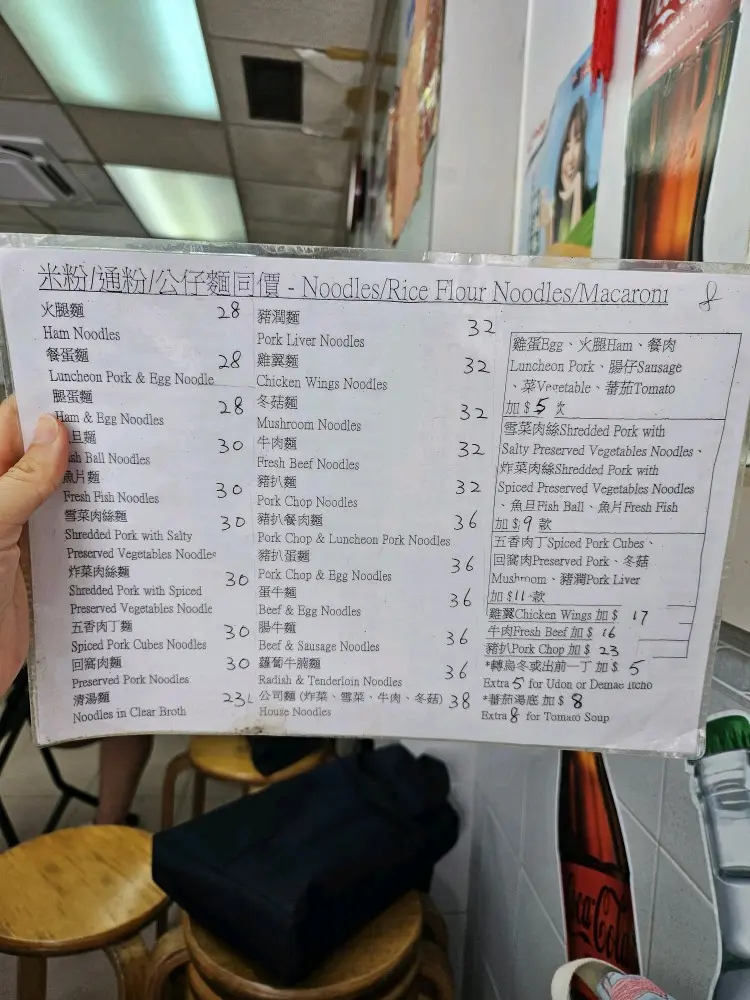 米粉/通粉/公仔麵同價 - Noodles/Rice Flour Noodles/Macaroni 8
火腿麵 28
Ham Noodles
餐蛋麵 28
Luncheon Pork & Egg Noodle
腿蛋麵 28
Ham & Egg Noodles
旦麵 30
Ball Noodles
魚片麵 30
Fresh Fish Noodles
雪菜肉絲麵 30
Shredded Pork with Salty
Preserved Vegetables Noodles
炸菜肉絲麵 30
Shredded Pork with Spiced
Preserved Vegetables Noodle
五香肉丁麵 30
Spiced Pork Cubes Noodles
回窩肉麵 30
Preserved Pork Noodles
清湯麵 23
Noodles in Clear Broth
豬潤麵 32
Pork Liver Noodles
雞翼麵 32
Chicken Wings Noodles
冬菇麵 32
Mushroom Noodles
牛肉麵 32
Fresh Beef Noodles
豬扒麵 32
Pork Chop Noodles
豬扒餐肉麵 36
Pork Chop & Luncheon Pork Noodles
豬扒蛋麵 36
Pork Chop & Egg Noodles
蛋牛麵 36
Beef & Egg Noodles
腸牛麵 36
Beef & Sausage Noodles
蘿蔔牛腩麵 36
Radish & Tenderloin Noodles
公司麵 (炸菜、雪菜、牛肉、冬菇) 38
House Noodles
雞蛋Egg、火腿Ham、餐肉
Luncheon Pork、腸仔Sausage
、菜Vegetable、蕃茄Tomato
加 $ 5 款
雪菜肉絲Shredded Pork with
Salty Preserved Vegetables Noodles、
炸菜肉絲Shredded Pork with
Spiced Preserved Vegetables Noodles
、魚旦Fish Ball、魚片Fresh Fish
加 $ 9 款
五香肉丁Spiced Pork Cubes、
回窩肉Preserved Pork、冬菇
Mushroom、豬潤Pork Liver
加 $11 款
雞翼Chicken Wings 加 $ 17
牛肉Fresh Beef 加 $ 16
豬扒Pork Chop 加 $ 23
*轉烏冬或出前一丁 加 $ 5
Extra 5 for Udon or Demae
*蕃茄湯底 加 $ 8
Extra 8 for Tomato Soup
Coca-Cola